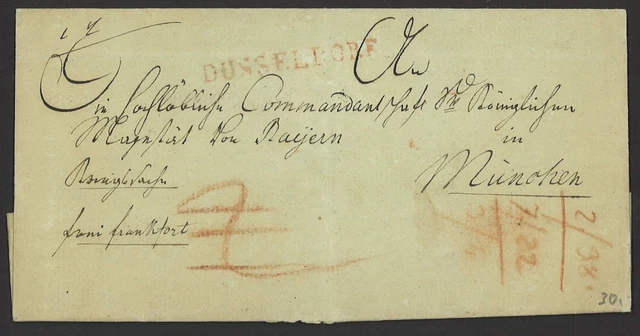 DÜSSELDORF
An
Ein Hochlöbliche Commandantschaft Sr Königlichen
Majestät von Bayern
in
München
Kriegssache
frei frankfort
2/38.
7/22
30.